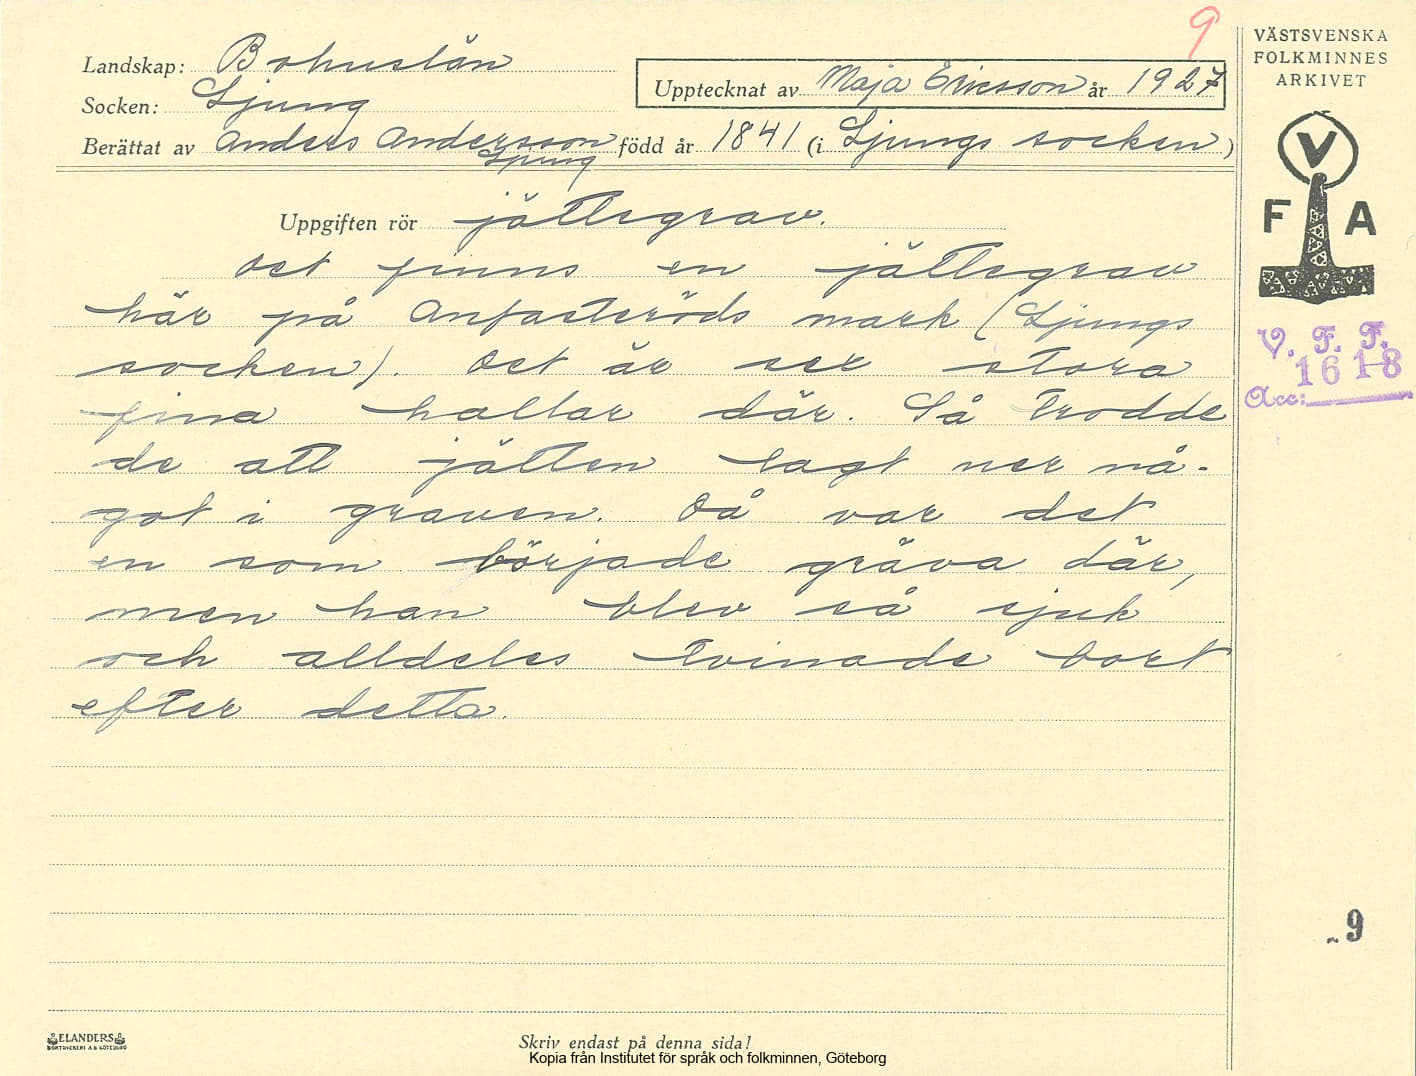 9
VÄSTSVENSKA
FOLKMINNES
ARKIVET
Landskap: Bohuslän
Upptecknat av Maja Ericsson år 1927
Socken: Ljung
Berättat av Anders Andersson född år 1841 (i Ljungs socken)
Ljung
V
F A
Uppgiften rör jättegrav.
Det finns en jättegrav
här på Anfasteröds mark (Ljungs
socken). Det är sex stora
fina hallar där. Så trodde
de att jätten lagt ner nå-
got i graven. Då var det
en som började gräva där,
men han blev så sjuk
och alldeles tvinade bort
efter detta.
V. F. F.
1618
Acc:
9
ELANDERS
BOKTRYCKERI A.B. GÖTEBORG
Skriv endast på denna sida!
Kopia från Institutet för språk och folkminnen, Göteborg